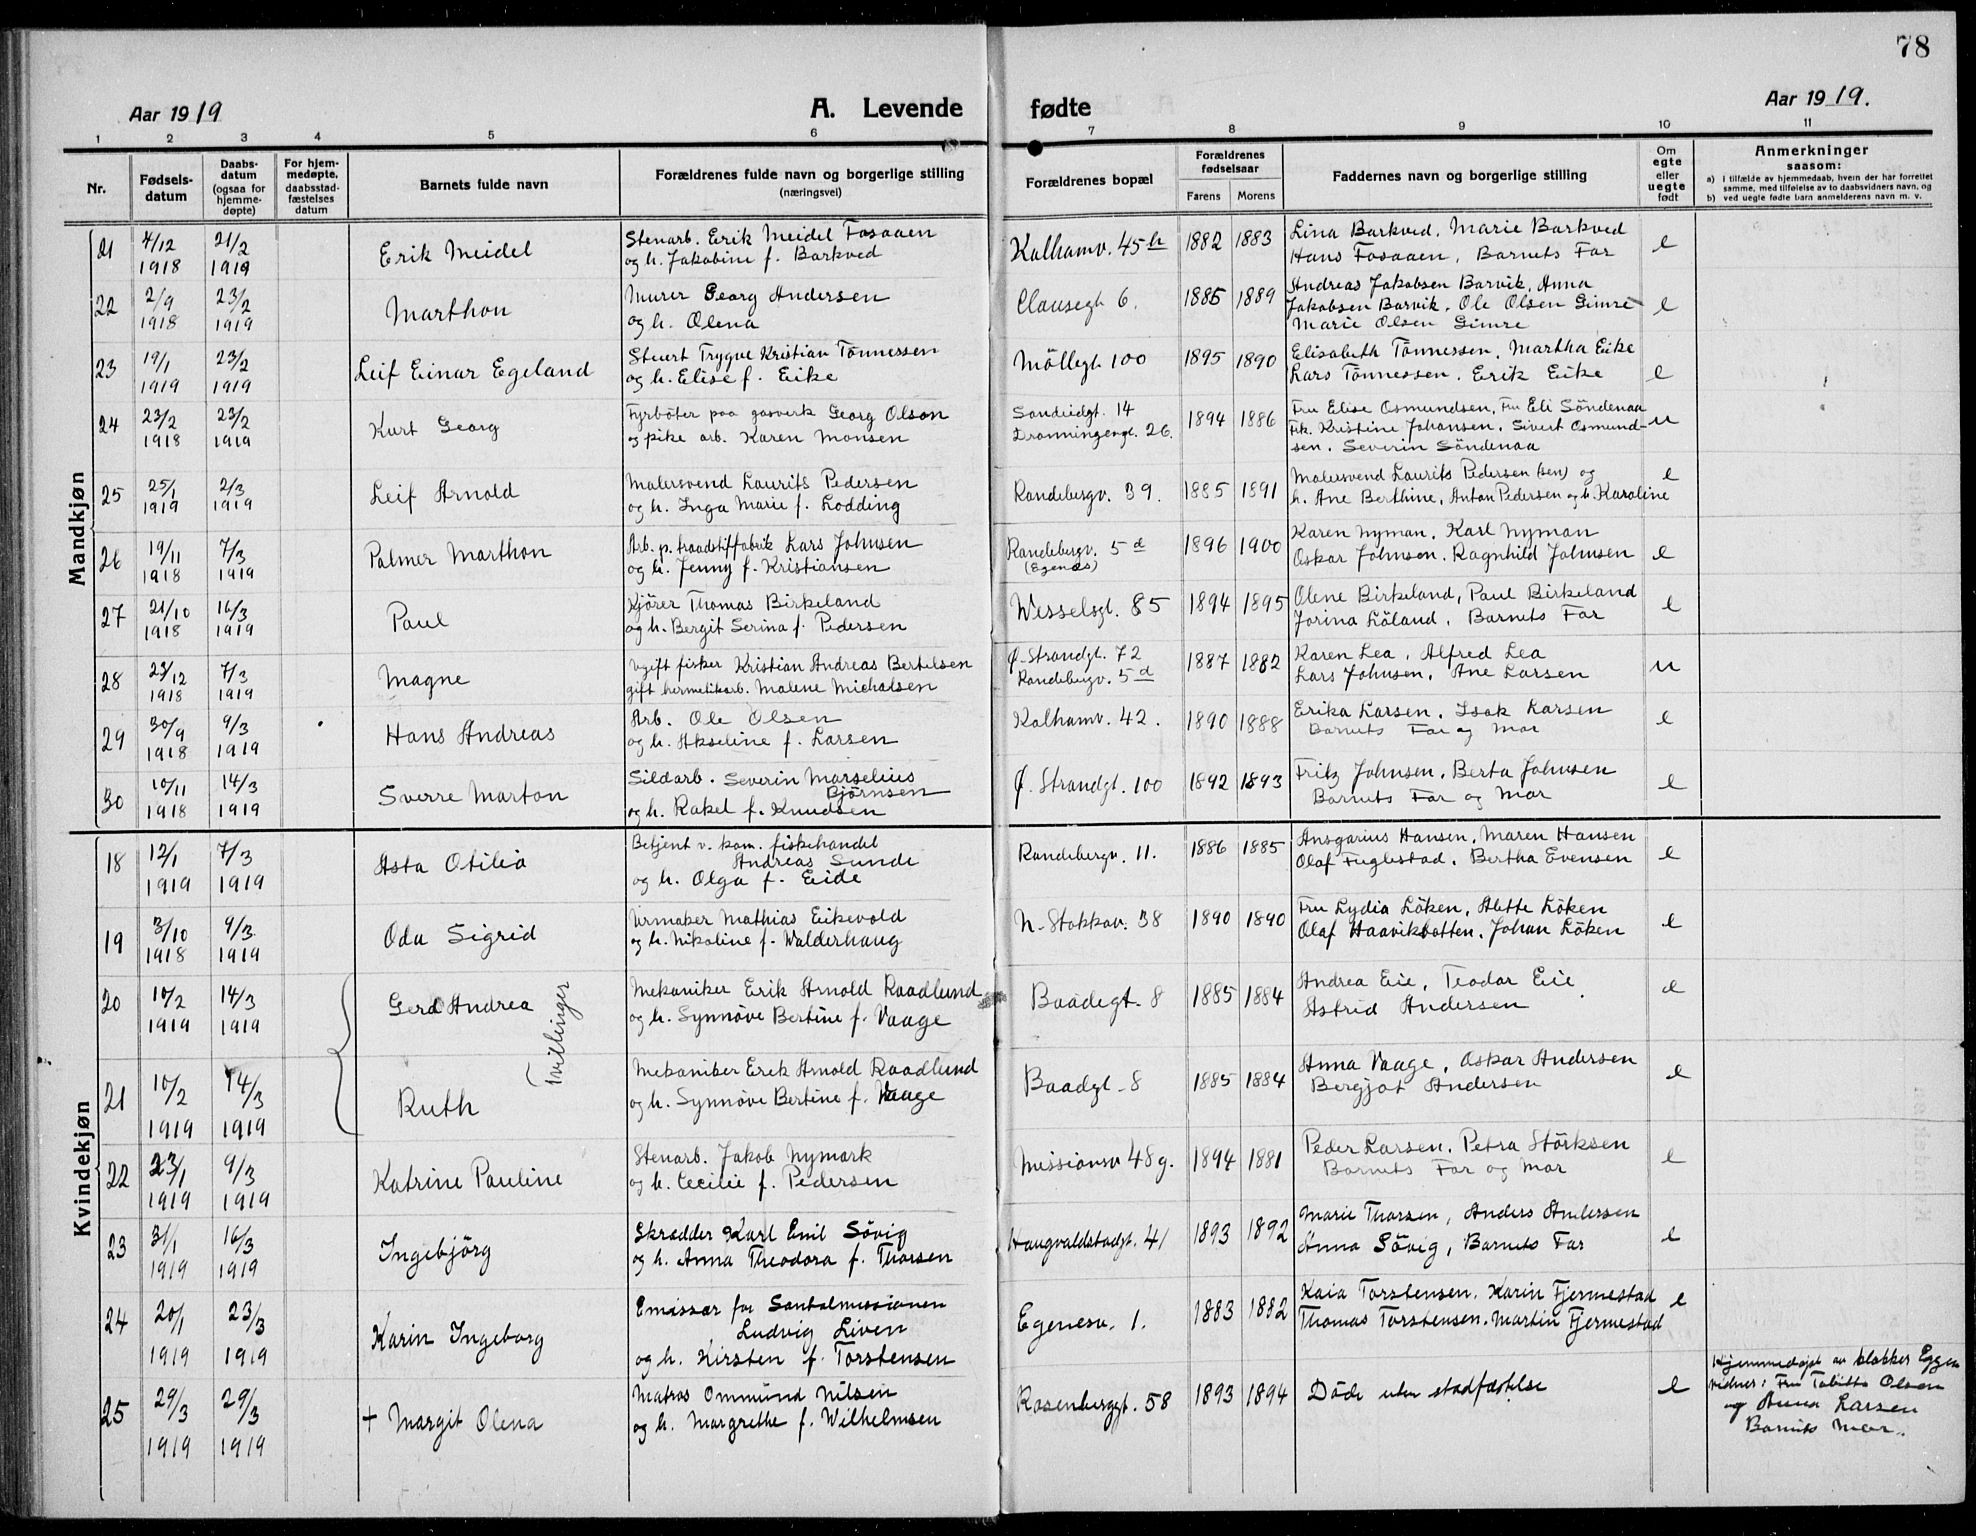 78
Aar 1919 A. Levende fødte Aar 1919.
1 2 3 4 5 6 7 8 9 10 11
Nr. Fødsels-datum Daabs-datum (ogsaa for hjemme-døpte) For hjem-medøpte, daabsstad-fæstelses datum Barnets fulde navn Forældrenes fulde navn og borgerlige stilling (næringsvei) Forældrenes bopæl Forældrenes fødselsaar Farens Morens Faddernes navn og borgerlige stilling Om egte eller uegte født Anmerkninger saasom:
a) i tilfælde av hjemmedaab, hvem der har forrettet samme, med tilføielse av to daabsvidners navn, og
b) ved uegte fødte barn anmelderens navn m. v.
Mandkjøn
21 4/12 1918 21/2 1919 Erik Meidel Stenarb. Erik Meidel Fosaaen Kalhamv. 45 h 1882 1883 Lina Barkved, Marie Barkved e
og h. Jakobine f. Barkved Hans Fosaaen, Barnets Far
22 2/9 1918 23/2 1919 Marthon Murer Georg Andersen Clausegt 6. 1885 1889 Andreas Jakobsen Barvik, Anna e
og h. Olena Jakobsen Barvik, Ole Olsen Gimre
Marie Olsen Gimre
23 19/1 1919 23/2 1919 Leif Einar Egeland Stuert Trygve Kristian Tönnessen Möllegt 100 1895 1890 Elisabeth Tönnessen, Martha Eike e
og h. Elise f. Eike Lars Tönnessen. Erik Eike
24 23/2 1918 23/2 1919 Kurt Georg Fyrböter paa gasverk Georg Olson Sandeidgt. 14 1894 1886 Fru Elise Osmundsen, Fru Eli Söndenaa u
og pike arb. Karen Monsen Dronningensgt. 26. Frk. Kristine Johansen, Sivert Osmund-
sen. Severin Söndenaa
25 25/1 1919 2/3 1919 Leif Arnold Malersvend Laurits Pedersen Randebergv. 39. 1885 1891 Malersvend Laurits Pedersen (sen) og e
og h. Inga Marie f. Lodding h. Ane Berthine, Anton Pedersen og h. Karoline
26 19/11 1918 7/3 1919 Palmer Marthon Arb. p. traadstiffabrik Lars Johnsen Randebergv. 5 d 1896 1900 Karen Nyman, Karl Nyman e
og h. Jenny f. Kristiansen (Egenes) Oskar Johnsen. Ragnhild Johnsen
27 21/10 1918 16/3 1919 Paul Kjörer Thomas Birkeland Wesselsgt. 85 1894 1895 Olene Birkeland, Paul Birkeland e
og h. Bergit Serina f. Pedersen Jorina Löland, Barnets Far
28 23/12 1918 7/3 1919 Magne Ugift fisker Kristian Andreas Bertelsen Ø. Strandgt. 72 1887 1882 Karen Lea, Alfred Lea u
gift hermetikarb. Malene Michalsen Randebergv. 5 d Lars Johnsen, Ane Larsen
29 30/9 1918 9/3 1919 Hans Andreas Arb. Ole Olsen Kalhamv. 42. 1890 1888 Erika Larsen, Isak Larsen e
og h. Akseline f. Larsen Barnets Far og Mor
30 10/11 1918 14/3 1919 Sverre Marton Sildarb. Severin Marselius Ø. Strandgt. 100 1892 1893 Fritz Johnsen, Berta Johnsen e
Björnsen
og h. Rakel f. Knudsen Barnets Far og Mor
Kvindekjøn
18 12/1 1919 7/3 1919 Asta Otilia Betjent v. kom. fiskehandel Randebergv. 11. 1886 1885 Ansgarius Hansen, Maren Hansen e
Andreas Sunde Olaf Fuglestad, Bertha Evensen
og h. Olga f. Eide
19 3/10 1918 9/3 1919 Oda Sigrid Urmaker Mathias Eikevold N. Stokkav. 38 1890 1890 Fru Lydia Löken, Alette Löken e
og h. Nikoline f. Walderhaug Olaf Haavikbotten, Johan Löken
20 10/2 1919 14/3 1919 Gerd Andrea Tvillinger Mekaniker Erik Arnold Raadlund Baadegt. 8 1885 1884 Andrea Eie, Teodor Eie e
og h. Synnöve Bertine f. Vaage Astrid Andersen
21 10/2 1919 14/3 1919 Ruth Mekaniker Erik Arnold Raadlund Baadgt. 8 1885 1884 Anna Vaage, Oskar Andersen e
og h. Synnöve Bertine f. Vaage Bergjot Andersen
22 23/1 1919 9/3 1919 Katrine Pauline Stenarb. Jakob Nymark Missionsv 48g. 1894 1881 Peder Larsen, Petra Störksen e
og h. Cecilie f. Pedersen Barnets Far og Mor
23 31/1 1919 16/3 1919 Ingebjörg Skrædder Karl Emil Sövig Haugvaldstadgt. 41 1893 1892 Marie Thorsen, Anders Andersen e
og h. Anna Theodora f. Thorsen Anna Sövig, Barnets Far
24 20/1 1919 23/3 1919 Karin Ingeborg Emissær for Santalmissionen Egenesv. 1. 1883 1882 Kaia Torstensen, Karin Fjermestad e
Ludvig Liven Thomas Torstensen. Martin Fjermestad
og h. Kirsten f. Torstensen
25 29/3 1919 29/3 1919 + Margit Olena Matros Ommund Nilsen Rosenberggt. 58 1893 1894 Döde uten stadfæstelse e Hjemmedøpt av klokker Eggen
og h. Margrethe f. Wilhelmsen vidner: Fru Tabitta Olsen
og Anna Larsen
Barnets Mor.